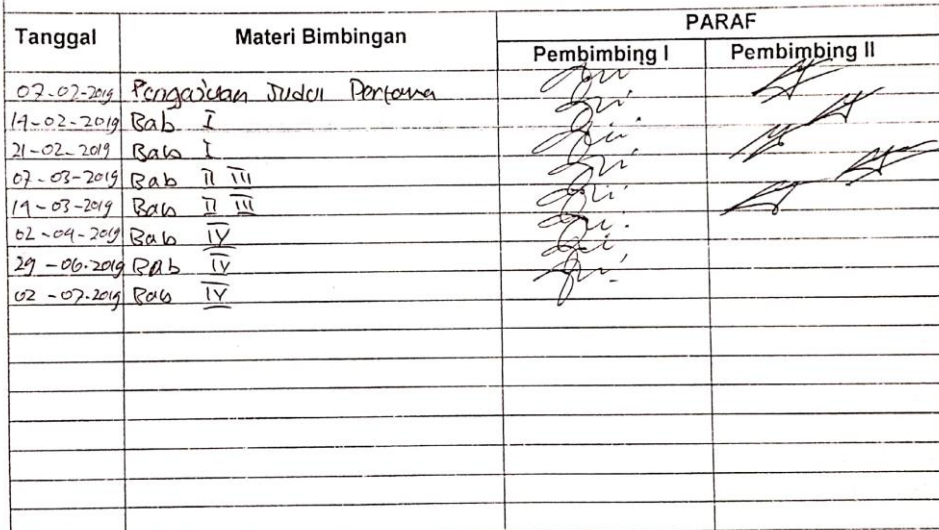 PARAF
Tanggal Materi Bimbingan Pembimbing I Pembimbing II
07-02-2019 Pengajuan Judul Pertama
14-02-2019 Bab I
21-02-2019 Bab I
07-03-2019 Bab II III
14-03-2019 Bab II III
02-04-2019 Bab IV
29-06-2019 Bab IV
02-07-2019 Bab IV